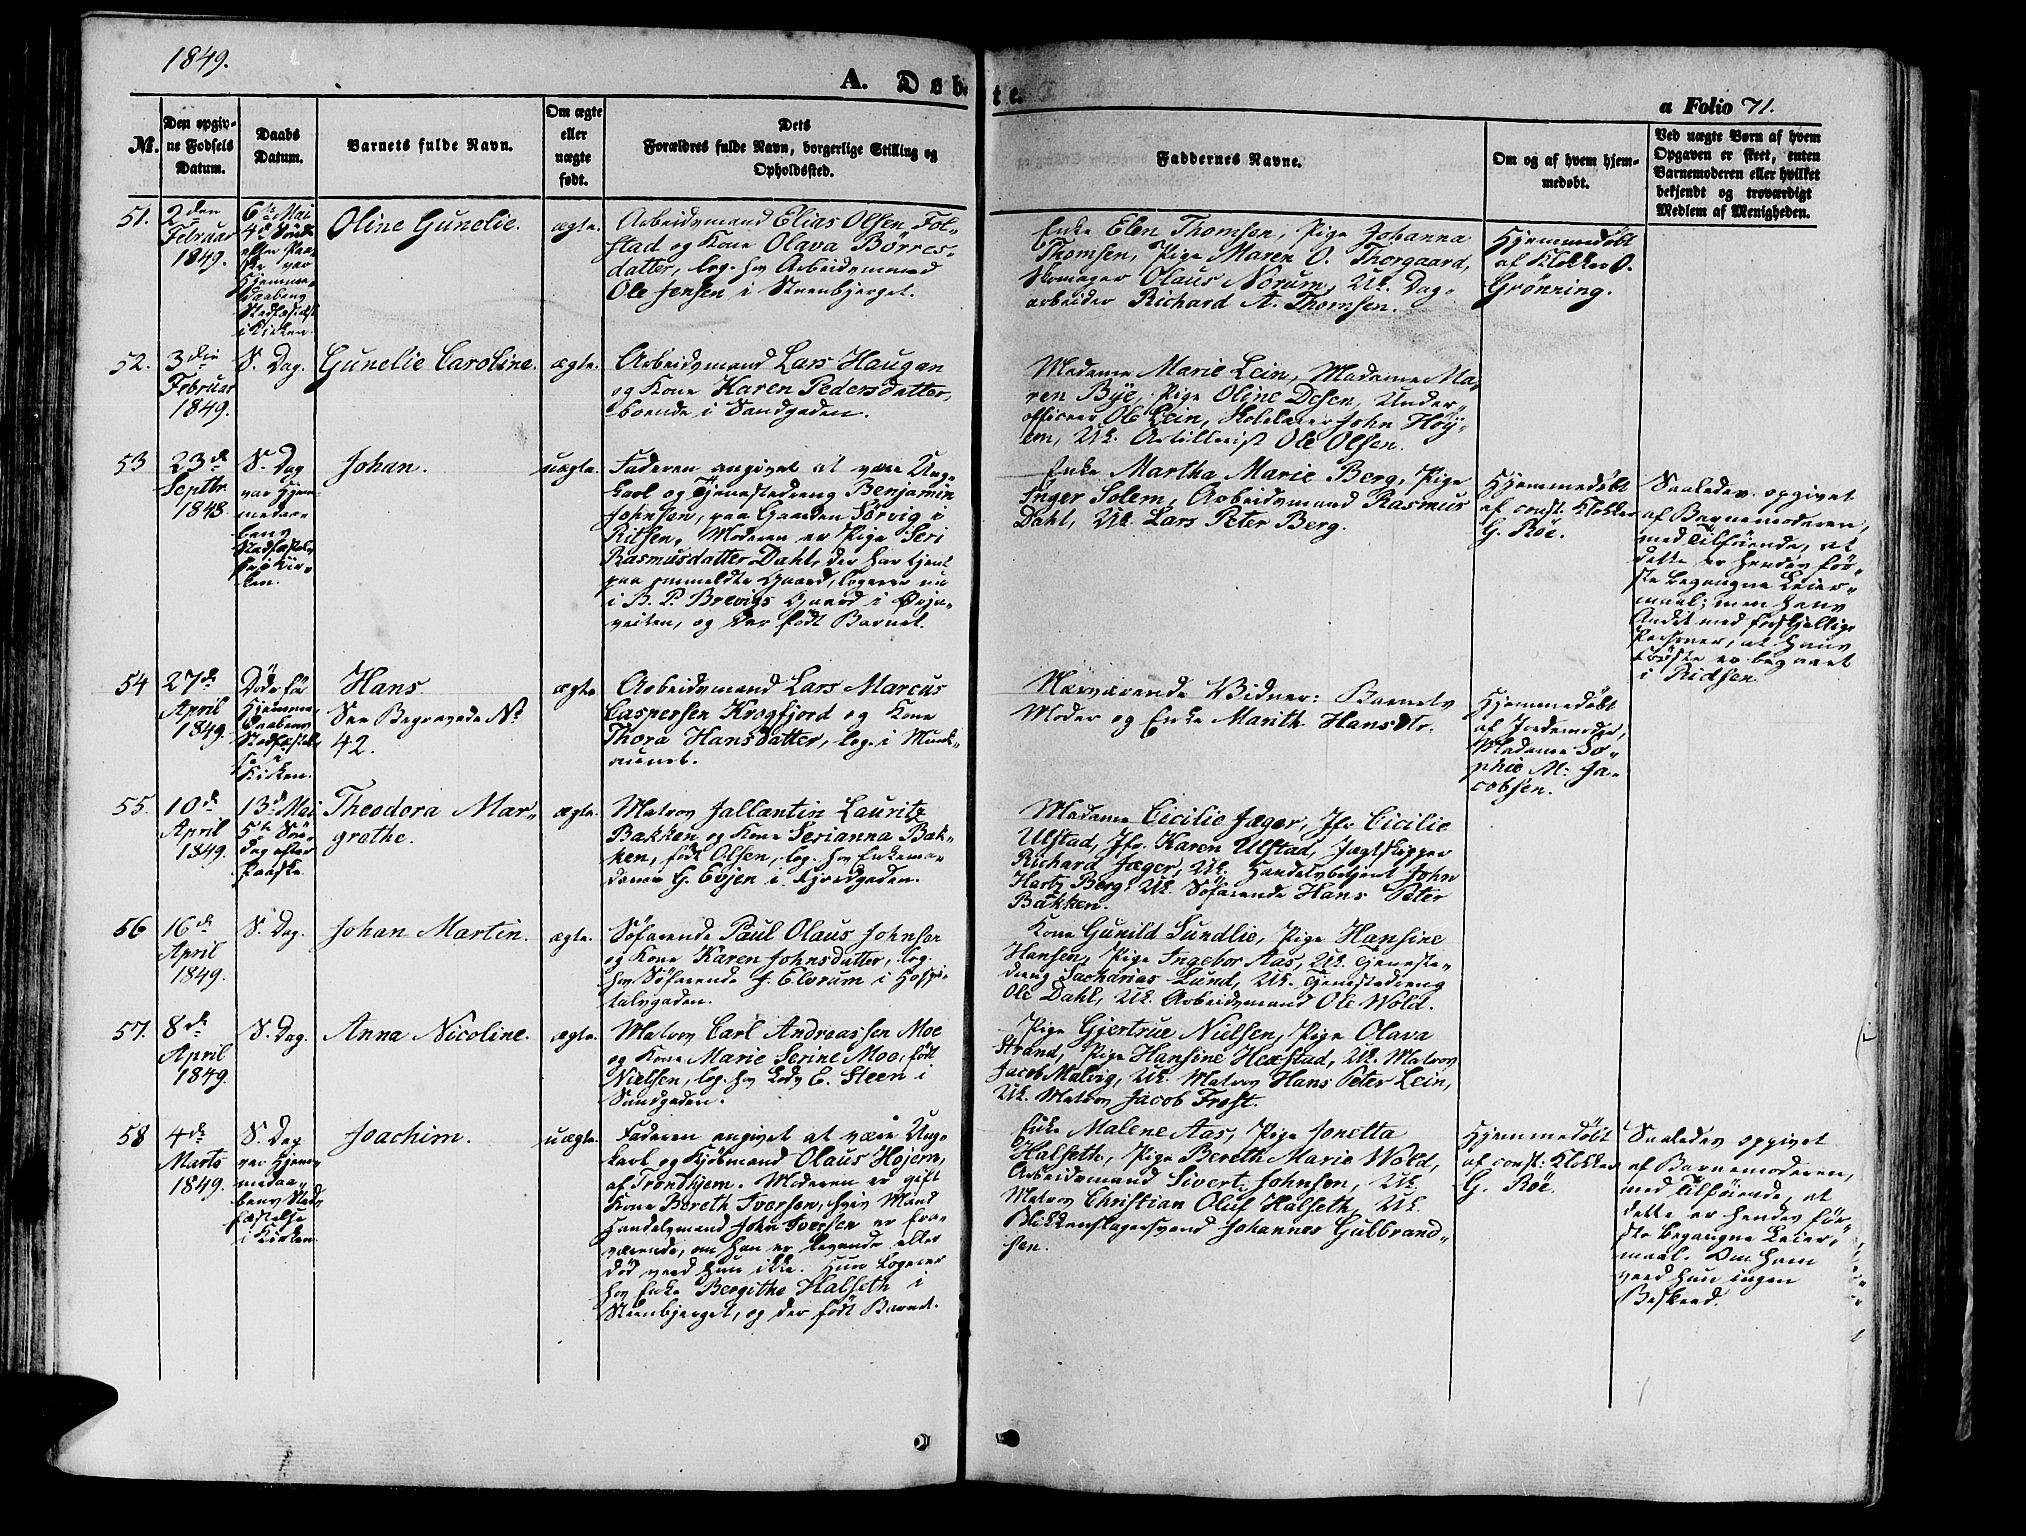 1849.
A. Døbte.
a Folio 71.
No.
Den opgiv-
ne Fødsels
Datum.
Daabs
Datum.
Barnets fulde Navn.
Om ægte
eller
uægte
født.
Dets
Forældres fulde Navn, borgerlige Stilling og
Opholdssted.
Faddernes Navne.
Om og af hvem hjem-
medøbt.
Ved uægte Børn af hvem
Opgaven er skeet, enten
Barnemoderen eller hvilket
bekjendt og troværdigt
Medlem af Menigheden.
51.
2den
Februar
1849.
6te Mai
4de Sönd.
efter Paa-
ske var
Hjemme-
daabens
Stadfæstelse
i Kirken.
Oline Gunelie.
ægte.
Arbeidsmand Elias Olsen Fol-
stad og Kone Olava Börres-
datter, log. hos Arbeidsmand
Ole Jensen i Steenbjerget.
Enke Elen Thomsen, Pige Johanna
Thomsen, Pige Maren O. Thorgaard,
Skomager Olaus Norum, Uk. Dag-
arbeider Richard A. Thomsen.
Hjemmedöbt
af Klokker O.
Grönning.
52.
3die
Februar
1849.
S. Dag.
Gunelie Caroline.
ægte.
Arbeidsmand Lars Haugan
og Kone Karen Pedersdatter,
boende i Sandgaden.
Madame Marie Lein, Madame Ma-
ren Bye, Pige Oline Desen, Under-
officeer Ole Lein, John Höy-
em, Uk. Artillerist Ole Olsen.
53
23de
Septbr.
1848
S. Dag
var Hjem-
medaa-
bens
Stadfæstel-
se i Kir-
ken.
Johan.
uægte.
Faderen angivet at være Ung-
karl og Tjenestedreng Benjamin
Johnsen, paa Gaarden Sörvig i
Ritsen. Moderen er Pige Seri
Rasmusdatter Dahl, der har tjent
paa ommeldte Gaard, logerer nu
i B. P. Brevigs Gaard i Örja-
veiten, og der födt Barnet.
Enke Martha Marie Berg, Pige
Inger Solem, Arbeidsmand Rasmus
Dahl, Uk. Lars Peter Berg.
Hjemmedöbt
af const. Klokker
G. Röe.
Saaledes opgivet
af Barnemoderen,
med Tilföiende, at
dette er hendes för-
ste begangne Leier-
maal; men hans
Andet med forskjellige
Personer, at hans
Förste er begaaet
i Ridsen.
54
27de
April
1849.
Död för
Hjemme-
daabens
Stadfæstel-
se i
Kirken.
Hans
See Begravede No
42.
ægte
Arbeidsmand Lars Marcus
Caspersen Krogfjord og Kone
Thora Hansdatter, log. i Munk-
aunet.
Nærværende Vidner: Barnets
Moder og Enke Marith Hansdtr.
Hjemmedöbt
af Jordemoder,
Madame So-
phie M. Ja-
cobsen.
55.
10de
April
1849.
13de Mai
5te Sön-
dag efter
Paaske.
Theodora Mar-
grethe.
ægte.
Matros Jallantin Lauritz
Bakken og Kone Serianna Bak-
ken, födt Olsen, log. hos Enkema-
dame G. Evjen i Fjordgaden.
Madame Cicilie Jæger, Jfr. Cicilie
Ulstad, Jfr. Karen Ulstad, Jagtskipper
Richard Jæger, Uk. Handelsbetjent John
Hartz Berg, Uk. Söfarende Hans Peter
Bakken.
56
16de
April
1849.
S. Dag.
Johan Martin.
ægte.
Söfarende Paul Olaus Johnsen
og Kone Karen Johnsdatter, log.
hos Söfarende J. Elvrum i Hospi-
talsgaden.
Kone Gunild Sundlie, Pige Hansine
Hansen, Pige Ingebor Aas, Uk. Tjeneste-
dreng Sacharias Lund, Uk. Tjenestedreng
Ole Dahl, Uk. Arbeidsmand Ole Wold.
57.
8de
April
1849.
S. Dag.
Anna Nicoline.
ægte.
Matros Carl Andreassen Moe
og Kone Marie Serine Moe, födt
Nielsen, log. hos Lods E. Steen i
Sandgaden.
Pige Gjertrue Nielsen, Pige Olava
Strand, Pige Hansine Hexstad, Uk. Matros
Jacob Malvig, Uk. Matros Hans Peter Lein,
Uk. Matros Jacob Frost.
58
4de
Marts
1849.
S. Dag
var Hjem-
medaa-
bens Stad-
fæstelse
i Kirken.
Joachim.
uægte.
Faderen angivet at være Ung-
karl og Kjöbmand Olaus Höjem,
af Trondhjem. Moderen er gift
Kone Bereth Iversen, hvis Mand
Handelsmand John Iversen er fra-
værende, om han er levende eller
död veed hun ikke. Hun logerer
hos Enke Bergithe Halseth i
Steenbjerget, og der födt Barnet.
Enke Malene Aas, Pige Jonetta
Halseth, Pige Bereth Marie Wold,
Arbeidsmand Sivert Johnsen, Uk.
Matros Christian Oluf Halseth, Uk.
Blikkenslagersvend Johannes Gulbrand-
sen.
Hjemmedöbt
af const: Klokker
G. Röe.
Saaledes opgivet
af Barnemoderen,
med Tilföiende, at
dette er hendes för-
ste begangne Leier-
maal. Om ham
veed hun ingen
Beskeed.